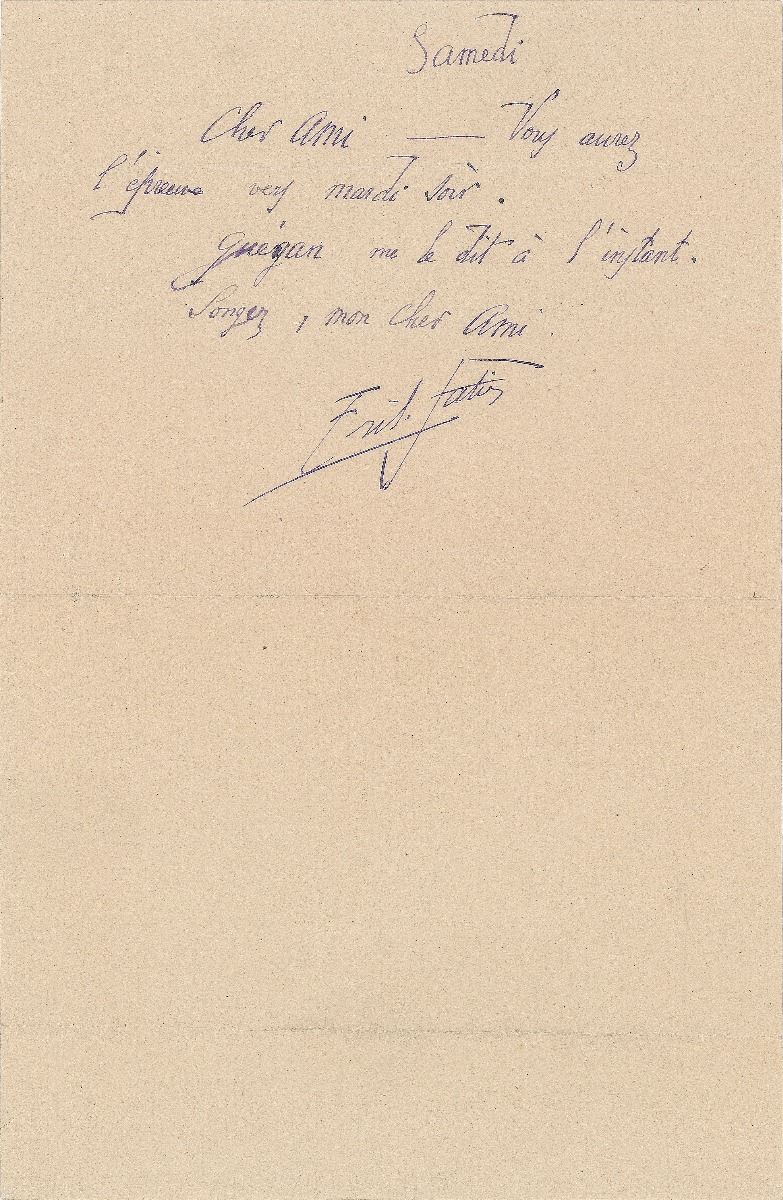 Samedi
Cher Ami — Vous aurez
l'épreuve vers mardi soir.
Guégan me le dit à l'instant.
Songez, mon cher Ami.
Erik Satie